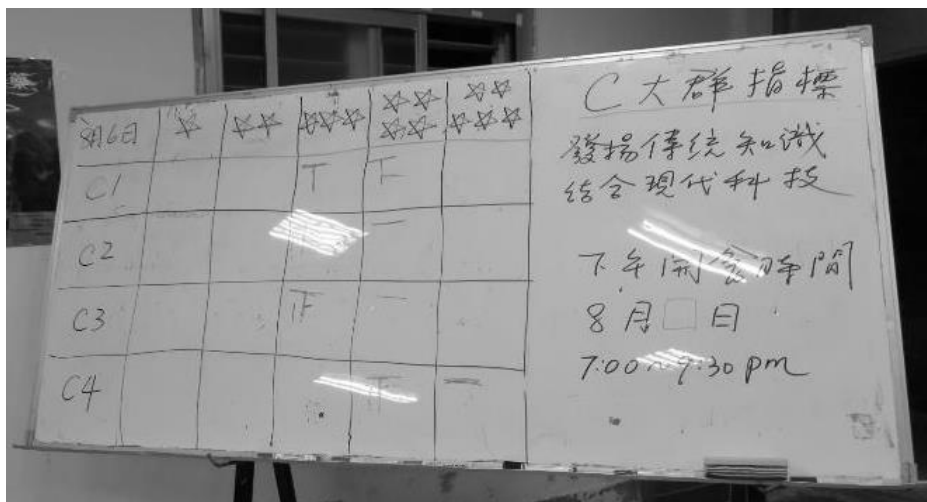 8月6日 ☆ ☆☆ ☆☆☆ ☆☆☆☆ ☆☆☆☆☆
C1
C2 一
C3 正 一
C4 正
C大群指標
發揚傳統知識
結合現代科技
下午開會時間
8月□日
7:00~9:30 pm